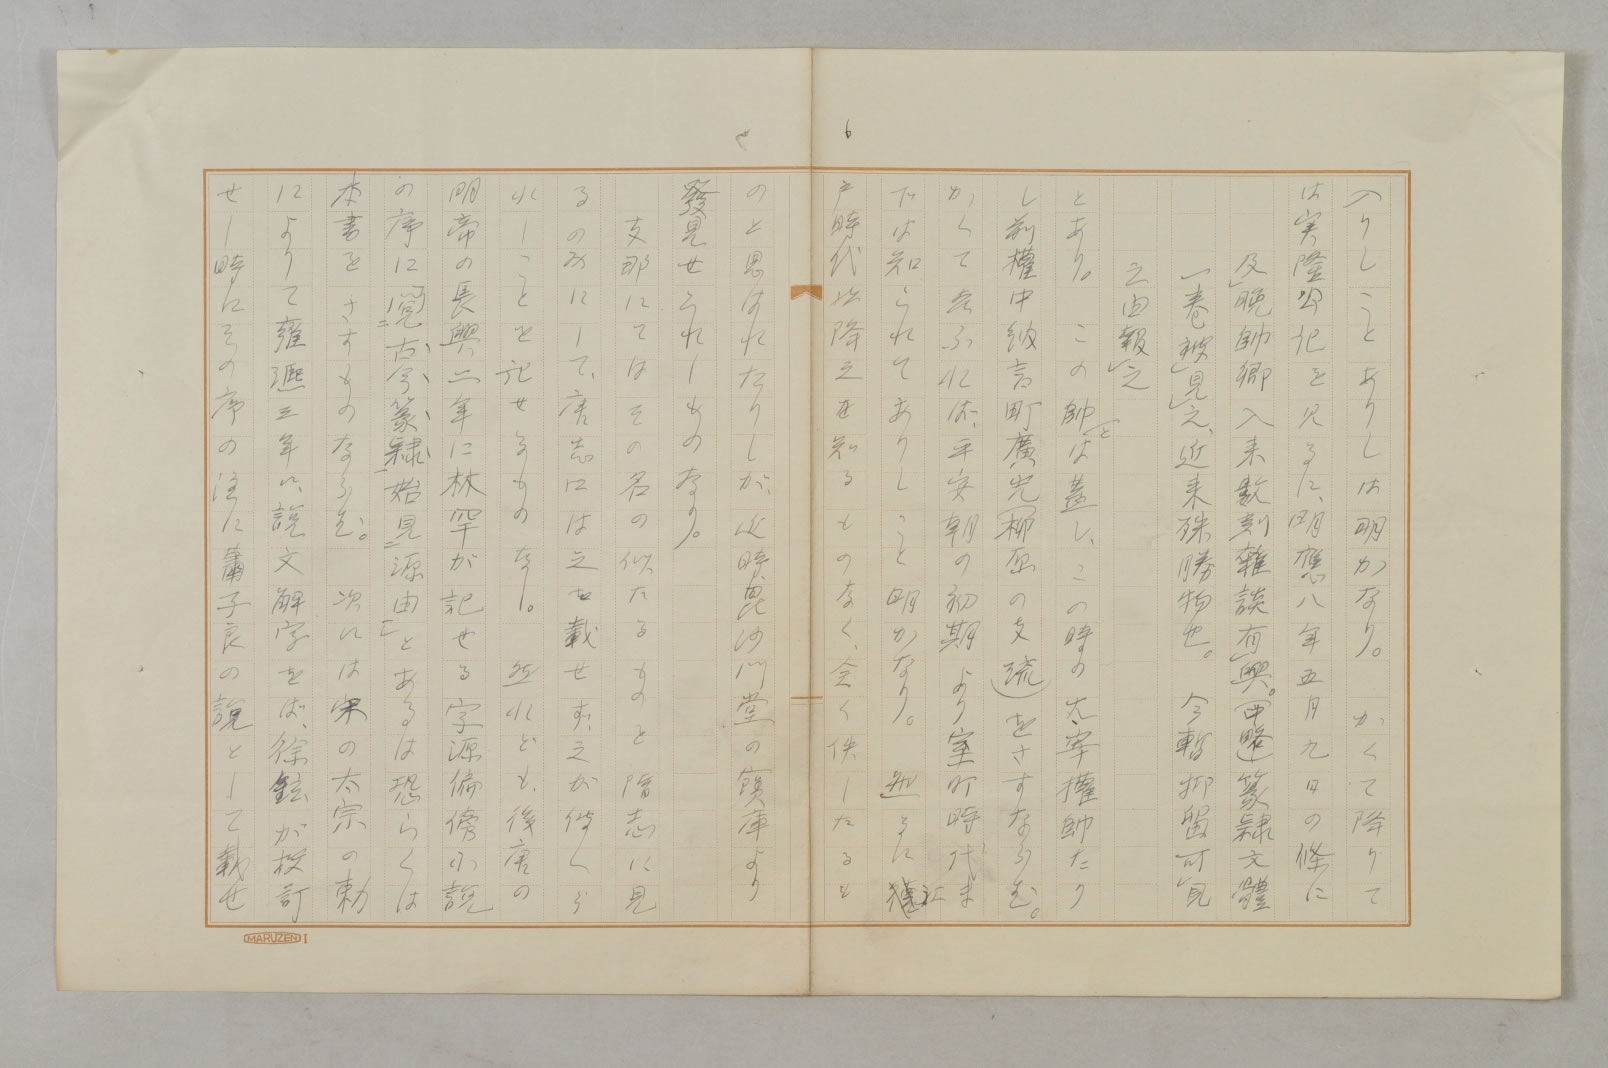 6
入りしことありしは明かなり。 かくて降りて
は実隆公記を見るに、明應八年五月九日の條に
及晩帥卿入来数刻雑談有興。(中略)篆隷文體
一巻被見之、近来殊勝物也。 今暫抑留可見
之由報之
とあり。 この帥とは蓋し、この時の太宰權帥たり
し前權中納言町廣光(柳原の支流)をさすならむ。
かくて本ふには、平安朝の初期より室町時代ま
では知られてありしこと明かなり。 然るに江
戸時代以降之を知るものなく、全く佚したるも
のと思はれたりしが、近時毘沙門堂の寶庫より
發見せられしものなり。
支那にてはその名の似たるものと隋志に見
るのみにして、唐志には之を載せず、之が傳へら
れしことを記せるものなし。 然れども、後唐の
明帝の長興二年に林罕が記せる字源偏傍小説
の序に「覧古今篆隷始見源由」とあるは恐らくは
本書をさすものならむ。 次には宋の太宗の勅
によりて雍熙三年に、説文解字をば、徐鉉が校訂
せし時にその序の注に蕭子良の説として載せ
MARUZEN I